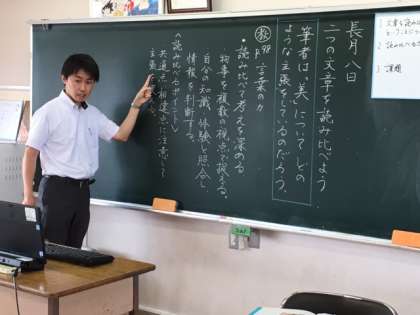 長月八日
二つの文章を読み比べよう
筆者は「美」についてどの
ような主張をしているのだろう。
教 p98 言葉の力
・読み比べて考えを深める
物事を複数の視点で捉える。
自分の知識、体験と照合し
情報を判断する。
〈読み比べのポイント〉
共通点、相違点に注意して
主張
1
2
3 課題